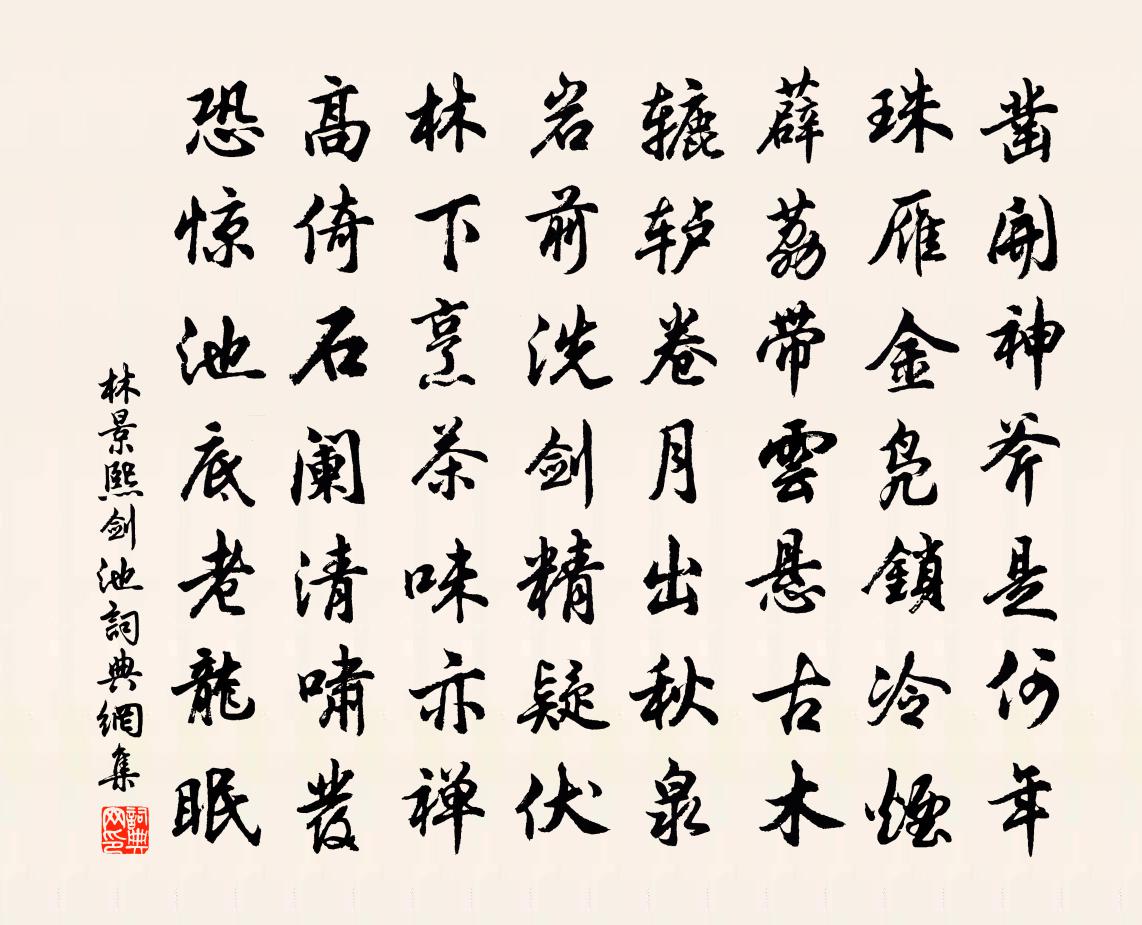 凿開神斧是何年
珠雁金凫鎖冷煙
薜荔帶雲悬古木
辘轳卷月出秋泉
岩前洗剑精疑伏
林下烹茶味亦禅
高倚石阑清嘯發
恐惊池底老龍眠
林景熙剑池詞典網集
詞典网印